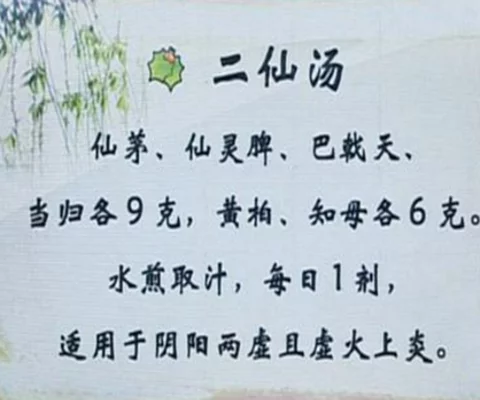 二仙汤
仙茅、仙灵脾、巴戟天、
当归各9克，黄柏、知母各6克。
水煎取汁，每日1剂，
适用于阴阳两虚且虚火上炎。